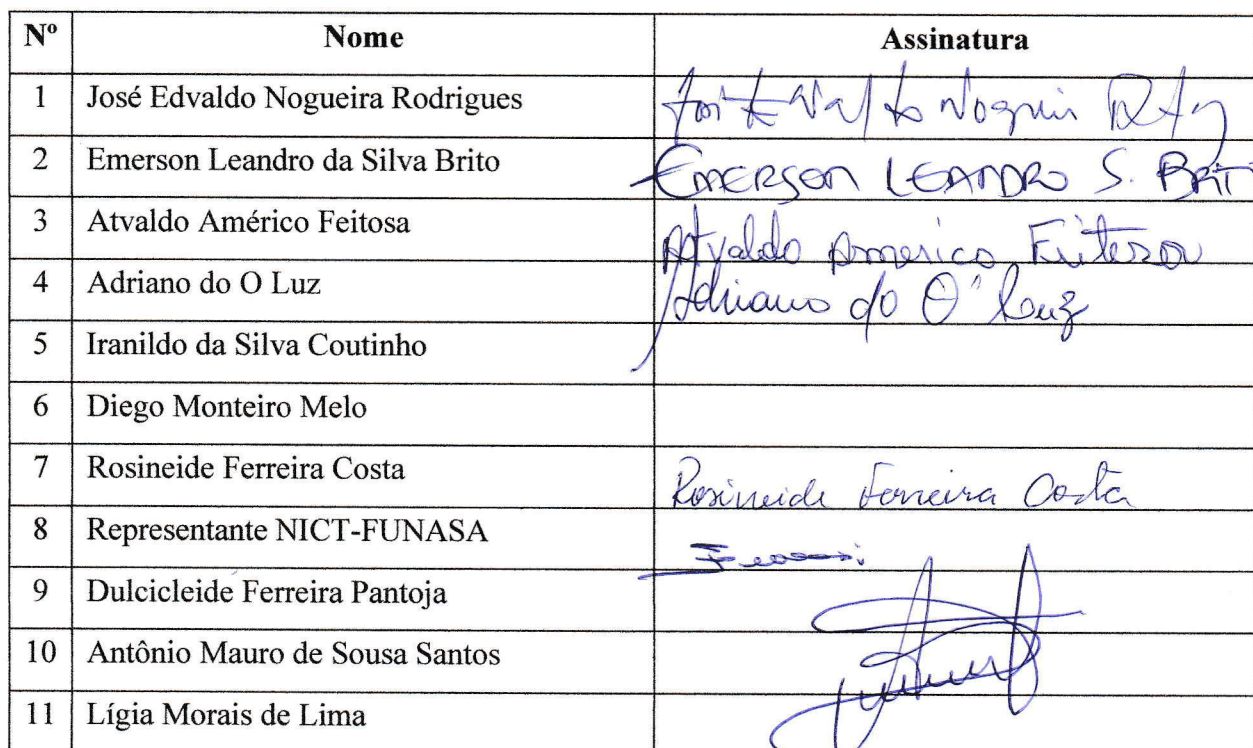 Nº Nome Assinatura
1 José Edvaldo Nogueira Rodrigues
2 Emerson Leandro da Silva Brito EMERSON LEANDRO S. BRIT
3 Atvaldo Américo Feitosa Atvaldo Americo Feitosa
4 Adriano do O Luz Adriano do O' Luz
5 Iranildo da Silva Coutinho
6 Diego Monteiro Melo
7 Rosineide Ferreira Costa Rosineide Ferreira Costa
8 Representante NICT-FUNASA
9 Dulcicleide Ferreira Pantoja
10 Antônio Mauro de Sousa Santos
11 Lígia Morais de Lima